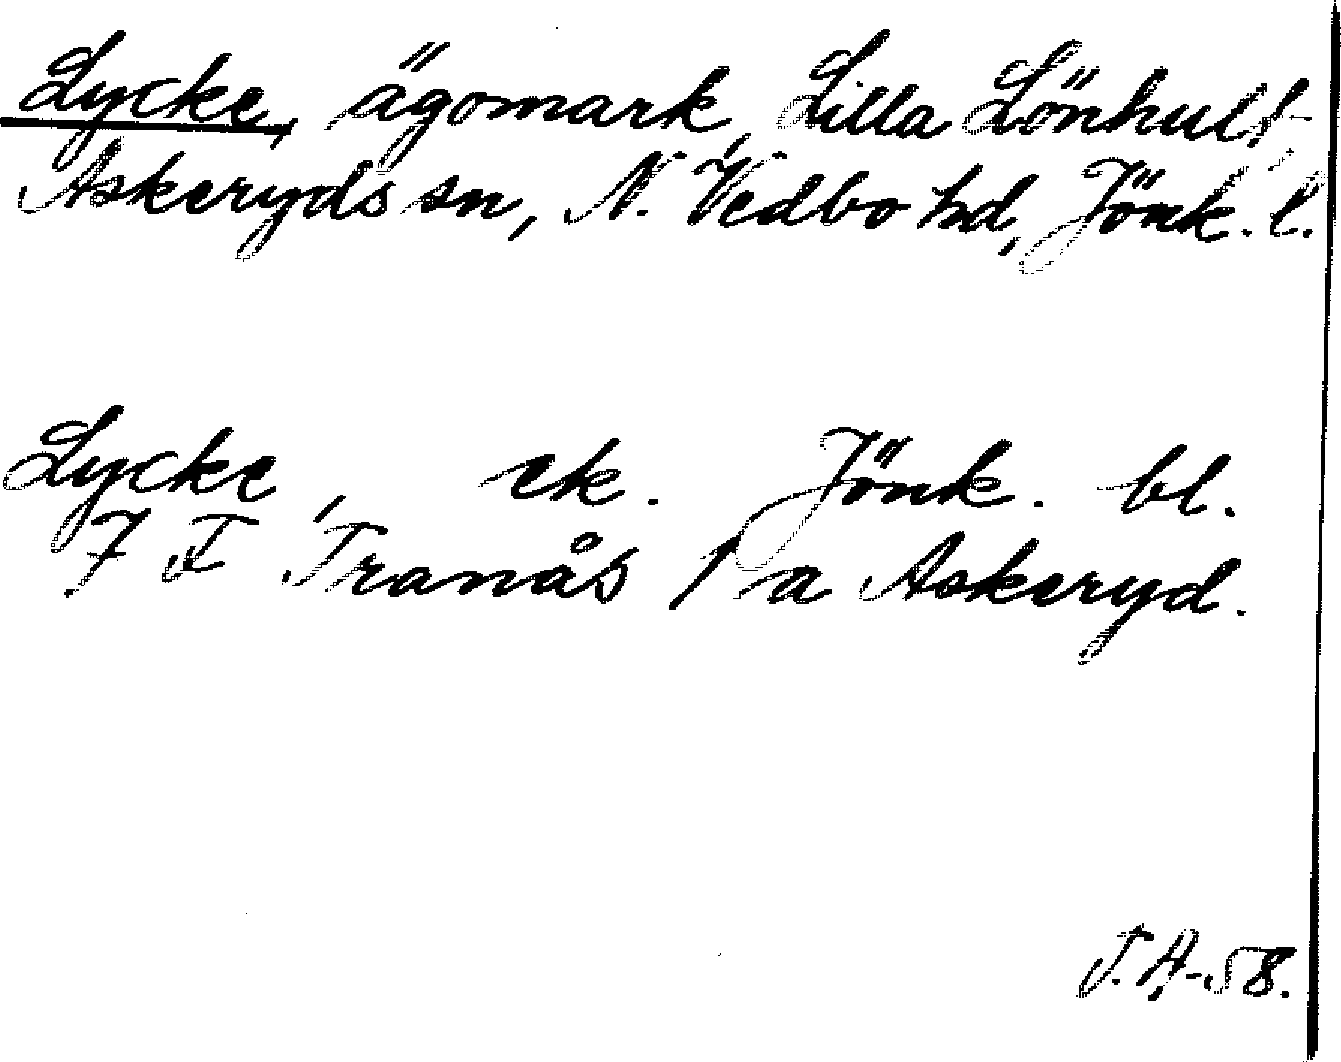 Lycke, ägomark, Lilla Lönhult
Askeryds sn, N. Vedbo hd, Jönk. l.
Lycke, ek. Jönk. bl.
7 F Tranås 1 a Askeryd.
J. A-58.